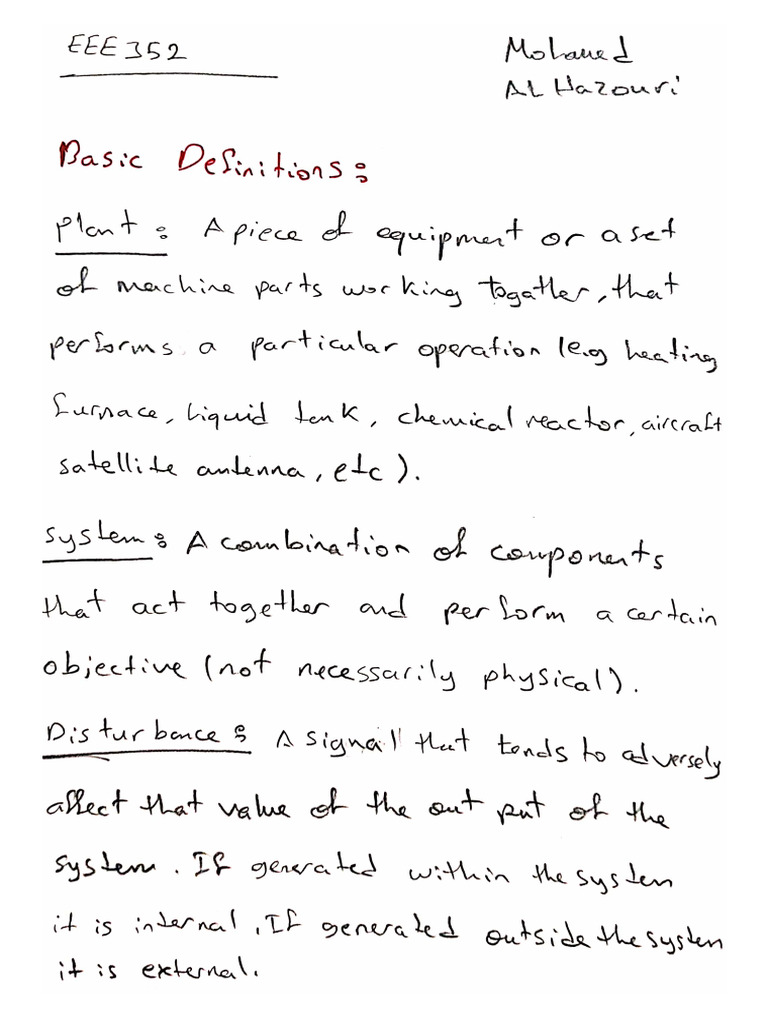 EEE352
Mohamed
AL Hazouri
Basic Definitions:
Plant: A piece of equipment or a set
of machine parts working togather, that
performs a particular operation (e.g heating
furnace, liquid tank, chemical reactor, aircraft
satellite antenna, etc).
System: A combination of components
that act together and perform a certain
objective (not necessarily physical).
Disturbance: A signal that tends to adversely
affect that value of the out put of the
system. If generated within the system
it is internal. If generated outside the system
it is external.